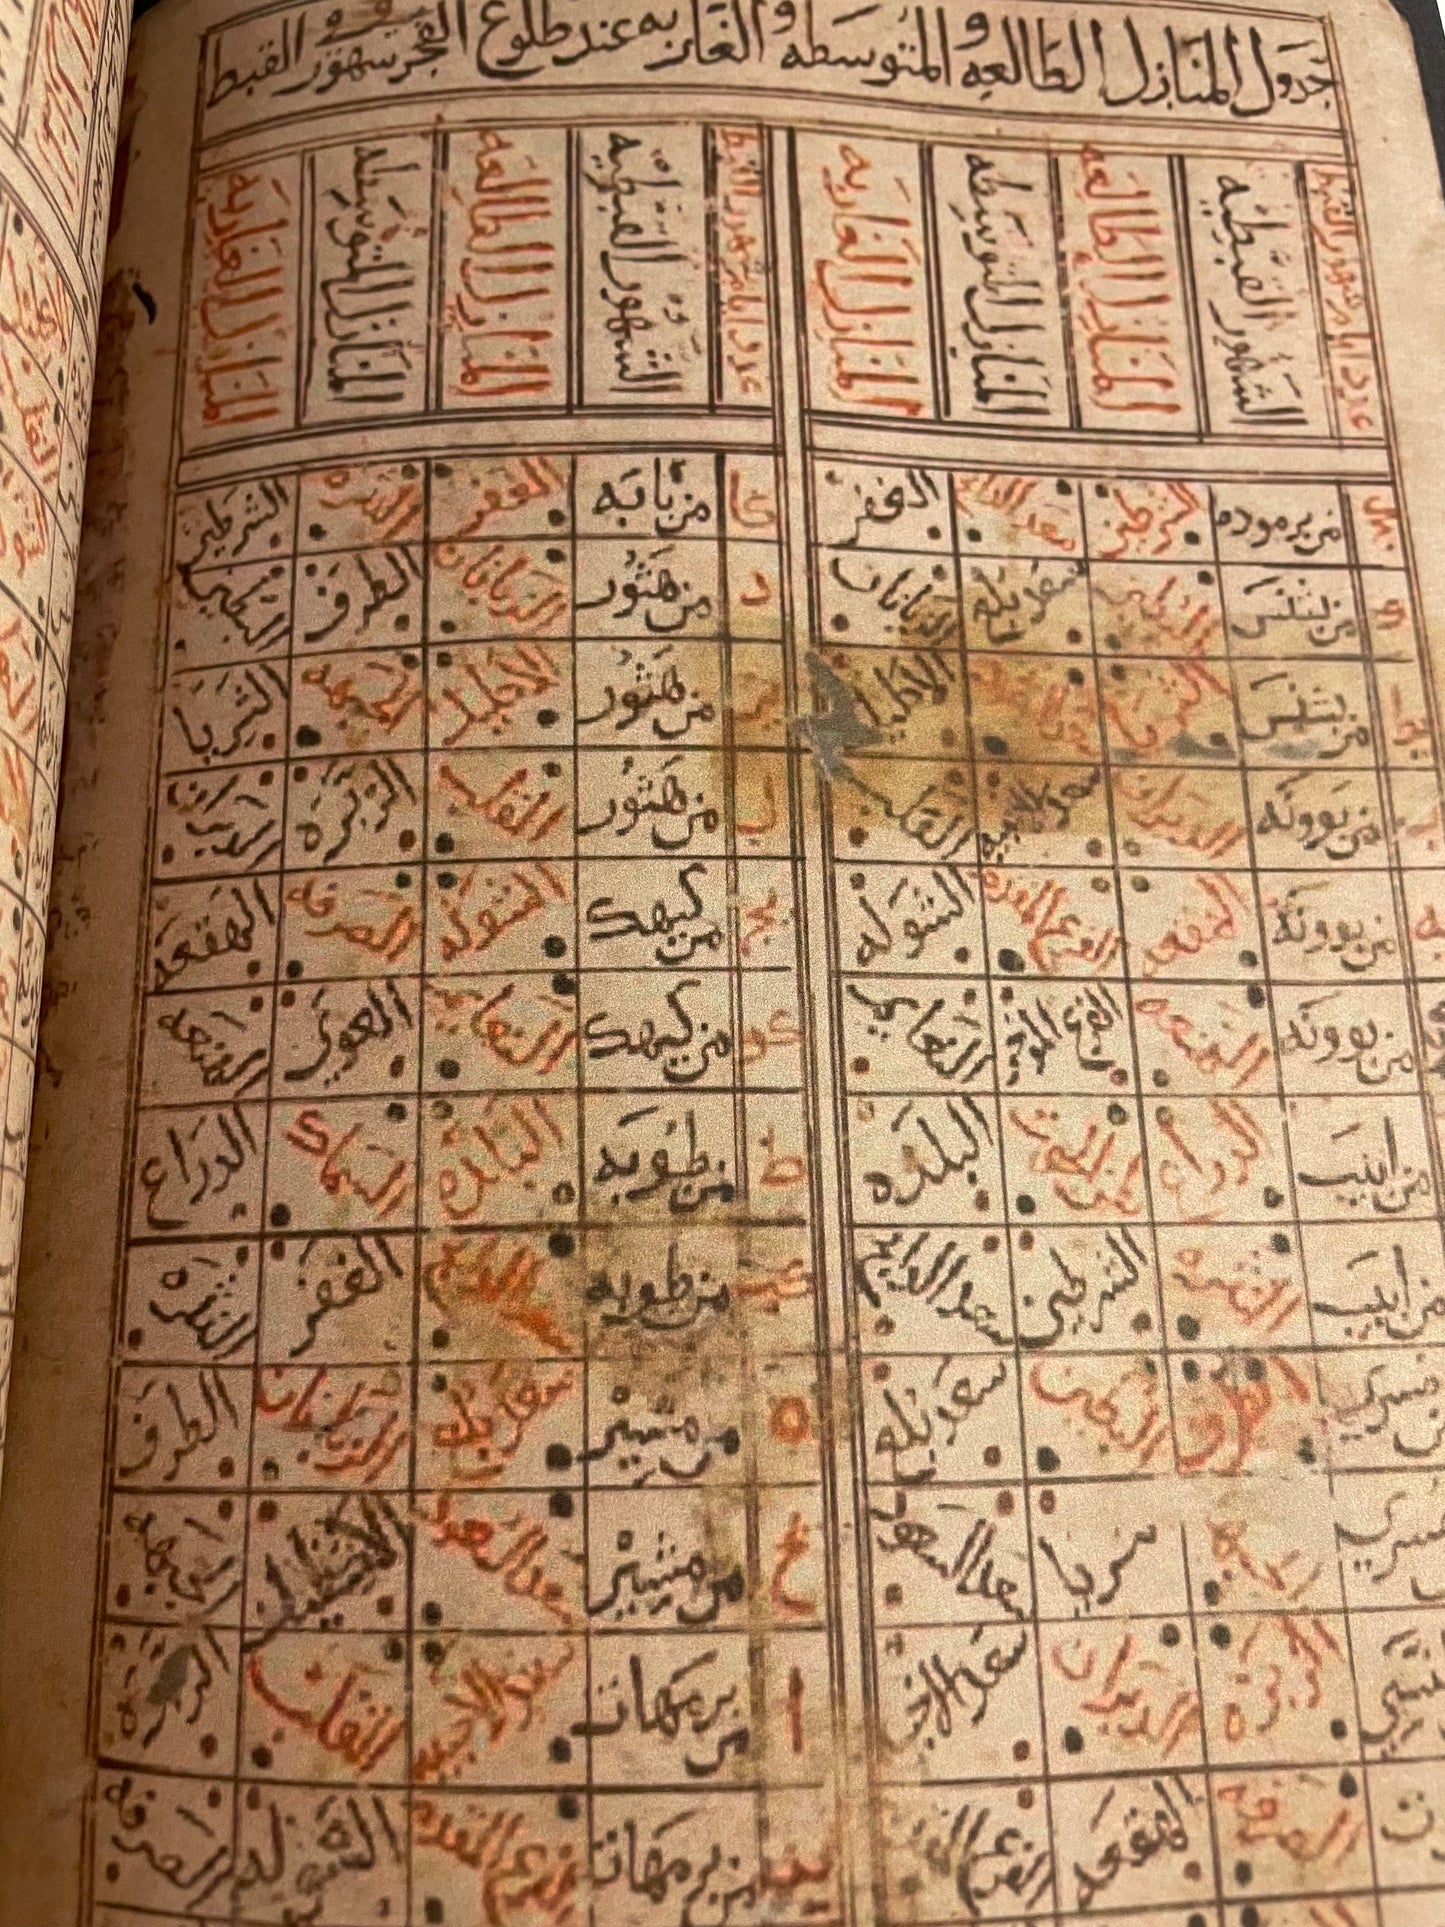 جدول المنازل الطالعه و المتوسطه و الغاربه عند طلوع الفجر فى شهور القبط
عدد ايام شهور القبط الشهور القبطيه المنازل الطالعه المنازل المتوسطه المنازل الغاربه عدد ايام شهور القبط الشهور القبطيه المنازل الطالعه المنازل المتوسطه المنازل الغاربه
من برموده الغفر من بابه الغفر النثره الشرطين
و من بشنس البطين سعد بلع الزبانان د من هتور الزبانان الطرف البطين
من بشنس الاكليل من هتور الاكليل الجبهه الثريا
من بوونه الدبران سعد الاخبيه القلب من هتور القلب الزبره الدبران
من بوونه الهقعه الفرع المقدم الشوله يج من كيهك الشوله الصرفه الهقعه
من بوونه الهنعه الفرع الموخر النعايم كو من كيهك النعايم العوى الهنعه
من ابيب الدراع بطن الحوت البلده ط من طوبه البلده السماك الدراع
من ابيب النثره الشرطين سعد الدابح من طوبه سعد الدابح الغفر النثره
من مسرى الطرف البطين سعد بلع ه من مشير سعد بلع الزبانان الطرف
مسرى الجبهه ثريا سعد السعود من مشير سعد السعود الاكليل الجبهه
الزبره الدبران سعد الاخبيه ا من برمهات سعد الاخبيه القلب الزبره
الصرفه الهقعه الفرع من برمهات الفرع المقدم الشوله الصرفه